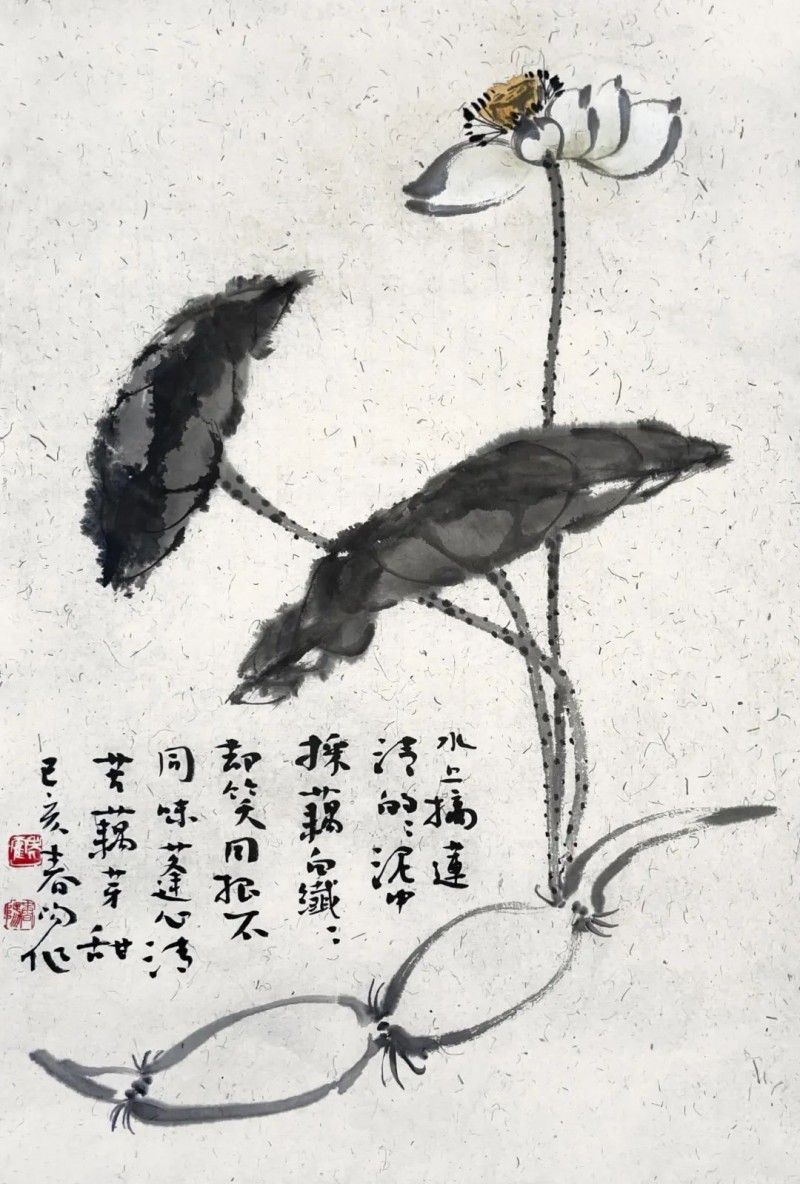 水上摘蓮
清的〻泥中
採藕白纖〻
却笑同根不
同味蓬心清
苦藕芽甜
己亥春尚作